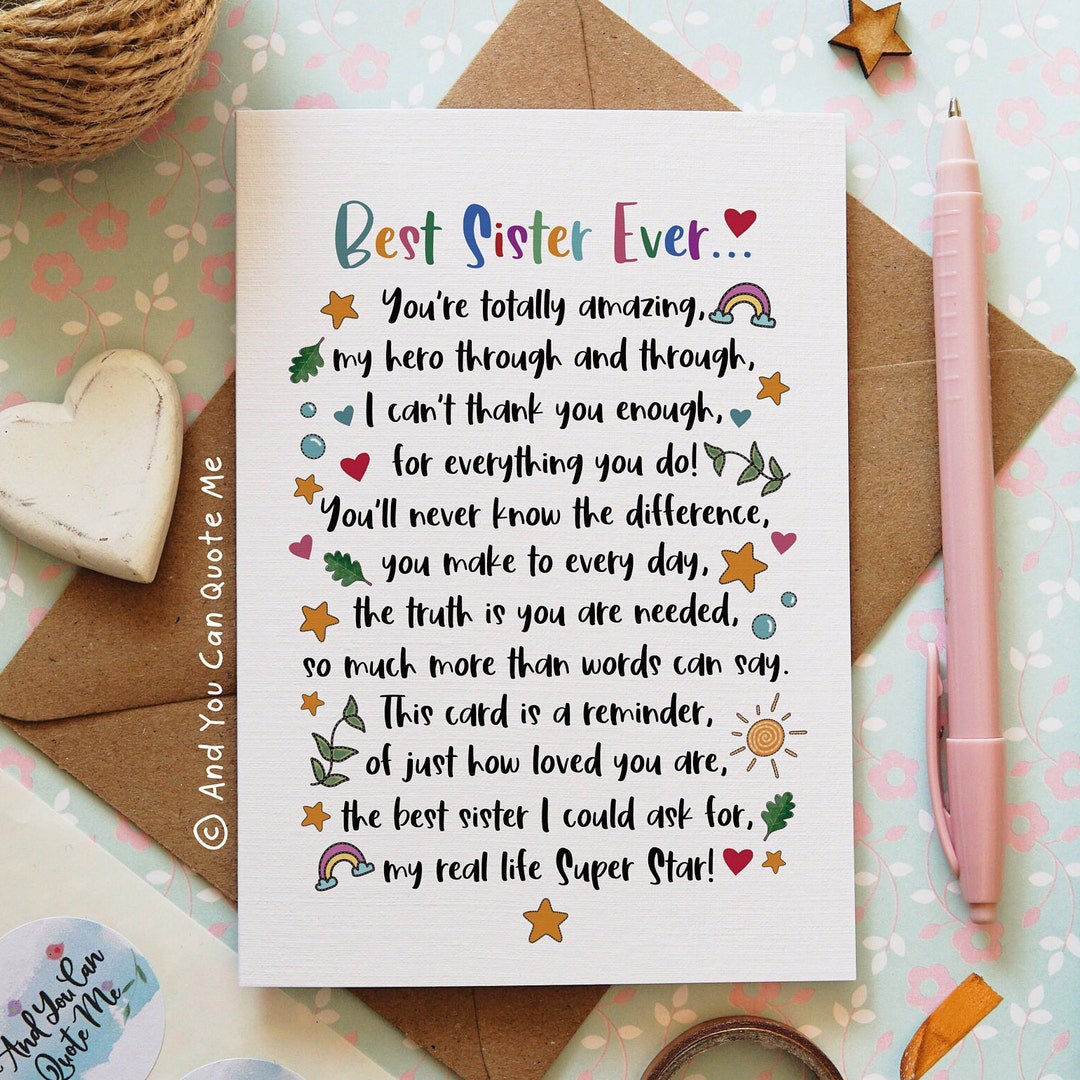 Best Sister Ever...
You're totally amazing,
my hero through and through,
I can't thank you enough,
for everything you do!
You'll never know the difference,
you make to every day,
the truth is you are needed,
so much more than words can say.
This card is a reminder,
of just how loved you are,
the best sister I could ask for,
my real life Super Star!
© And You Can Quote Me
And You Can
Quote Me